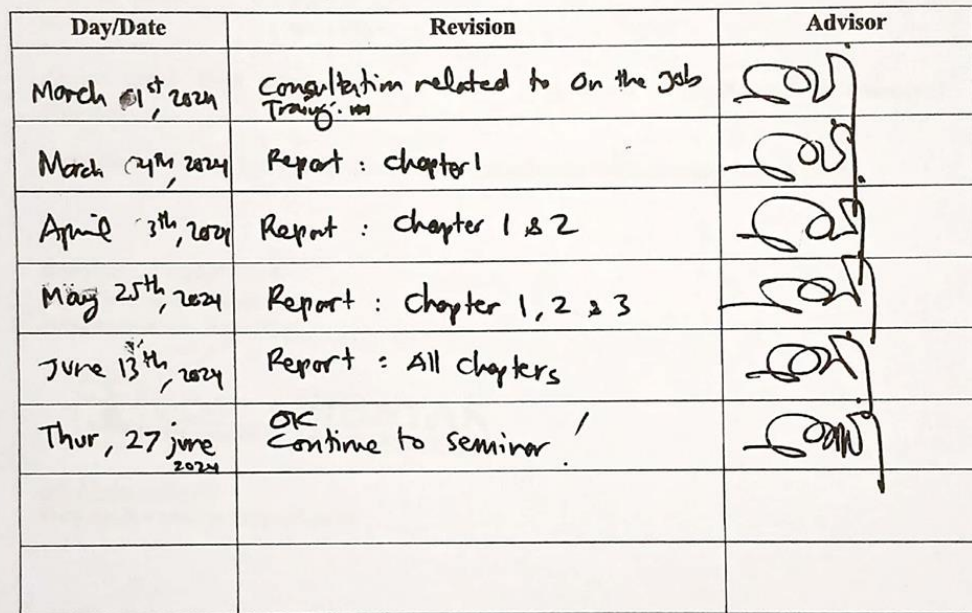 Day/Date Revision Advisor
March 01st, 2024 Consultation related to on the job
Training
March 4th, 2024 Report : chapter 1
April 3th, 2024 Report : Chapter 1 & 2
May 25th, 2024 Report : Chapter 1, 2 & 3
June 13th, 2024 Report : All chapters
OK
Thur, 27 june Continue to seminar !
2024